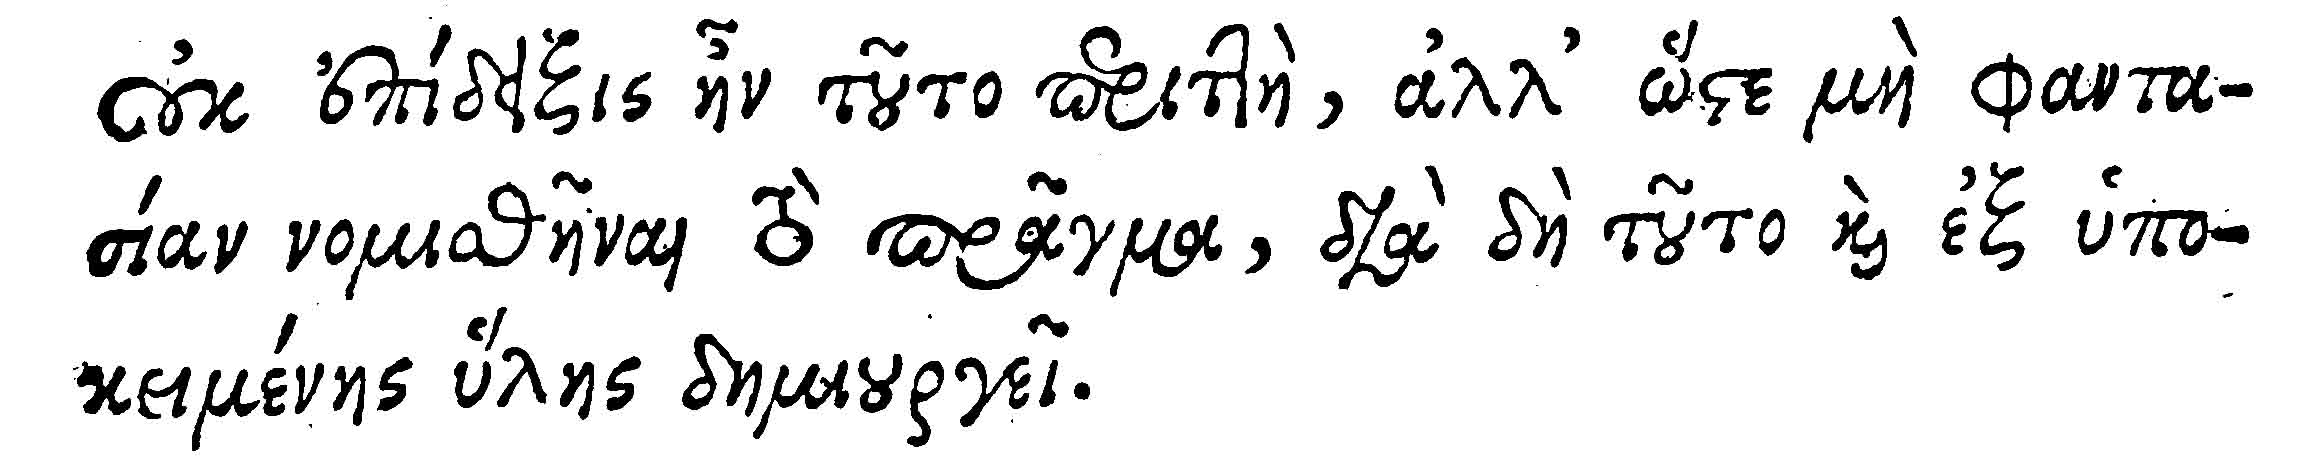 οὐκ ἐπίδειξις ἦν τοῦτο περιττὴ, ἀλλ’ ὥστε μὴ φαντα-
σίαν νομισθῆναι τὸ πρᾶγμα, διὰ δὴ τοῦτο καὶ ἐξ ὑπο-
κειμένης ὕλης δημιουργεῖ.